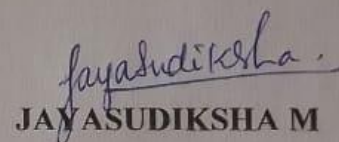 Jayasudiksha.
JAYASUDIKSHA M